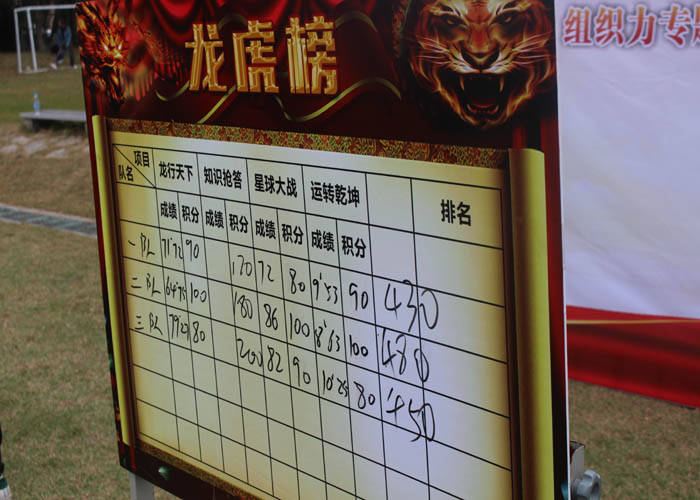 龙虎榜
组织力专
项目 龙行天下 知识抢答 星球大战 运转乾坤 排名
队名 成绩 积分 成绩 积分 成绩 积分 成绩 积分
一队 71'72 90 120 72 80 9'53 90 430
二队 64'75 100 180 86 100 8'63 100 480
三队 79'27 80 200 82 90 10'25 80 450